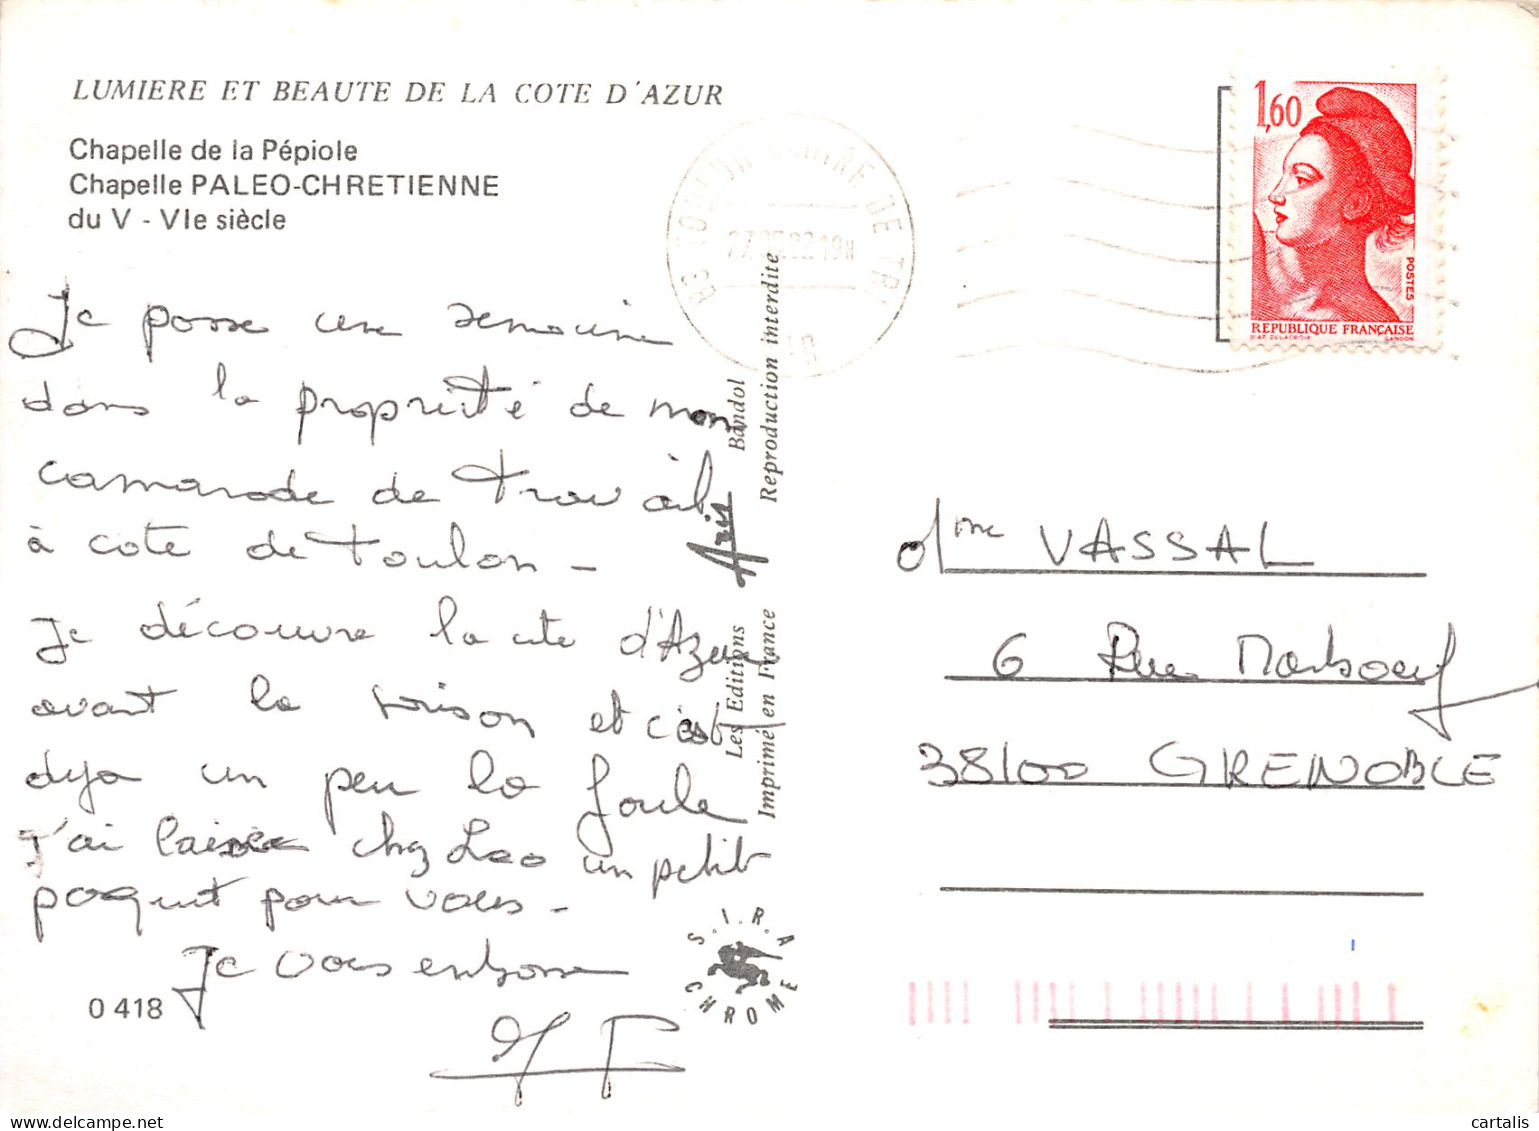 LUMIERE ET BEAUTE DE LA COTE D'AZUR
Chapelle de la Pépiole
Chapelle PALEO-CHRETIENNE
du V - VIe siècle
Je passe une semaine
dans la propriété de mon
camarade de travail
à coté de Toulon -
Je découvre la cote d'Azur
avant la saison et c'est
deja un peu la foule
J'ai laissé chez Leo un petit
paquet pour vous -
Je vous embrasse
0 418
Les Editions Azis Bandol
Imprimé en France Reproduction interdite
S.I.R.A
CHROME
83 TOULON
1,60
POSTES
REPUBLIQUE FRANÇAISE
D'AP. DELACROIX GANDON
Mme VASSAL
6 Rue Marboeuf
38100 GRENOBLE
cartalis